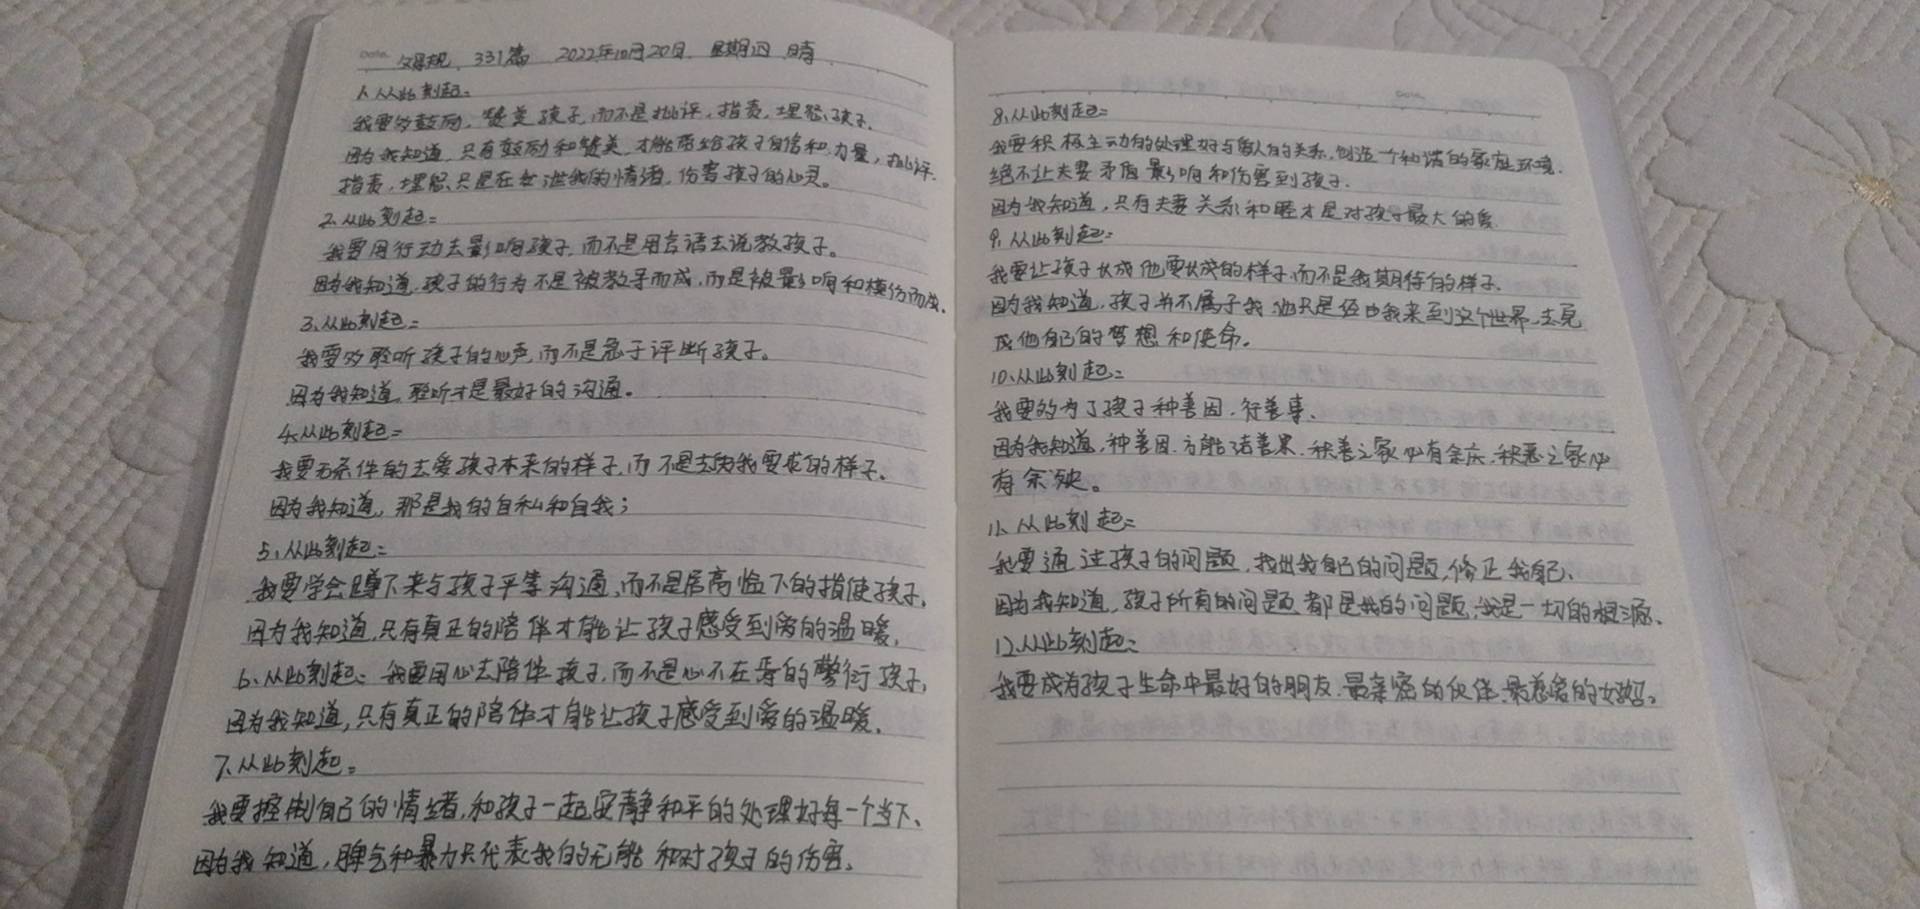 父母规、331篇 2022年10月20日 星期四 晴
1、从此刻起:
我要多鼓励、赞美孩子,而不是批评、指责、埋怨孩子.
因为我知道,只有鼓励和赞美,才能带给孩子自信和力量,批评.
指责、埋怨只是在发泄我的情绪,伤害孩子的心灵。
2、从此刻起:
我要用行动去影响孩子,而不是用言语去说教孩子。
因为我知道,孩子的行为不是被教导而成,而是被影响和模仿而成.
3、从此刻起:
我要多聆听孩子的心声,而不是急于评断孩子。
因为我知道,聆听才是最好的沟通。
4、从此刻起:
我要无条件的去爱孩子本来的样子,而不是去为我要求的样子.
因为我知道,那是我的自私和自我;
5、从此刻起:
我要学会蹲下来与孩子平等沟通,而不是居高临下的指使孩子.
因为我知道,只有真正的陪伴才能让孩子感受到爱的温暖.
6、从此刻起:我要用心去陪伴孩子,而不是心不在焉的敷衍孩子,
因为我知道,只有真正的陪伴才能让孩子感受到爱的温暖.
7、从此刻起:
我要控制自己的情绪,和孩子一起安静和平的处理好每一个当下、
因为我知道,脾气和暴力只代表我的无能和对孩子的伤害。
8、从此刻起:
我要积极主动的处理好与家人的关系,创造一个和谐的家庭环境.
绝不让夫妻矛盾影响和伤害到孩子.
因为我知道,只有夫妻关系和睦才是对孩子最大的爱.
9、从此刻起:
我要让孩子长成他要长成的样子,而不是我期待的样子.
因为我知道,孩子并不属于我,他只是经由我来到这个世界,去完
成他自己的梦想和使命。
10、从此刻起:
我要多为了孩子种善因,行善事.
因为我知道,种善因,方能结善果.积善之家必有余庆,积恶之家必
有余殃。
11、从此刻起:
我要通过孩子的问题,找出我自己的问题,修正我自己、
因为我知道,孩子所有的问题都是我的问题,我是一切的根源.
12、从此刻起:
我要成为孩子生命中最好的朋友、最亲密的伙伴、最慈爱的妈妈。